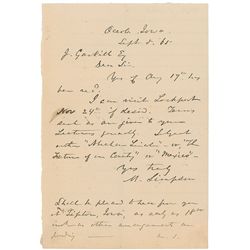 Osceola, Iowa.
Sept. 8. 65
J. Gaskill Esq
Dear Sir.
Yrs of Aug 17th has
been recd.
I can visit Lockport
Nov 24th if desired. Terms
such as are given to your
Lecturers generally. Subject
either "Abraham Lincoln" or "The
Future of our Country" or "Mexico"
Yrs truly
M. Simpson
Shall be pleased to hear from you
at Tipton, Iowa, as early as 18th
other arrangements are
pending